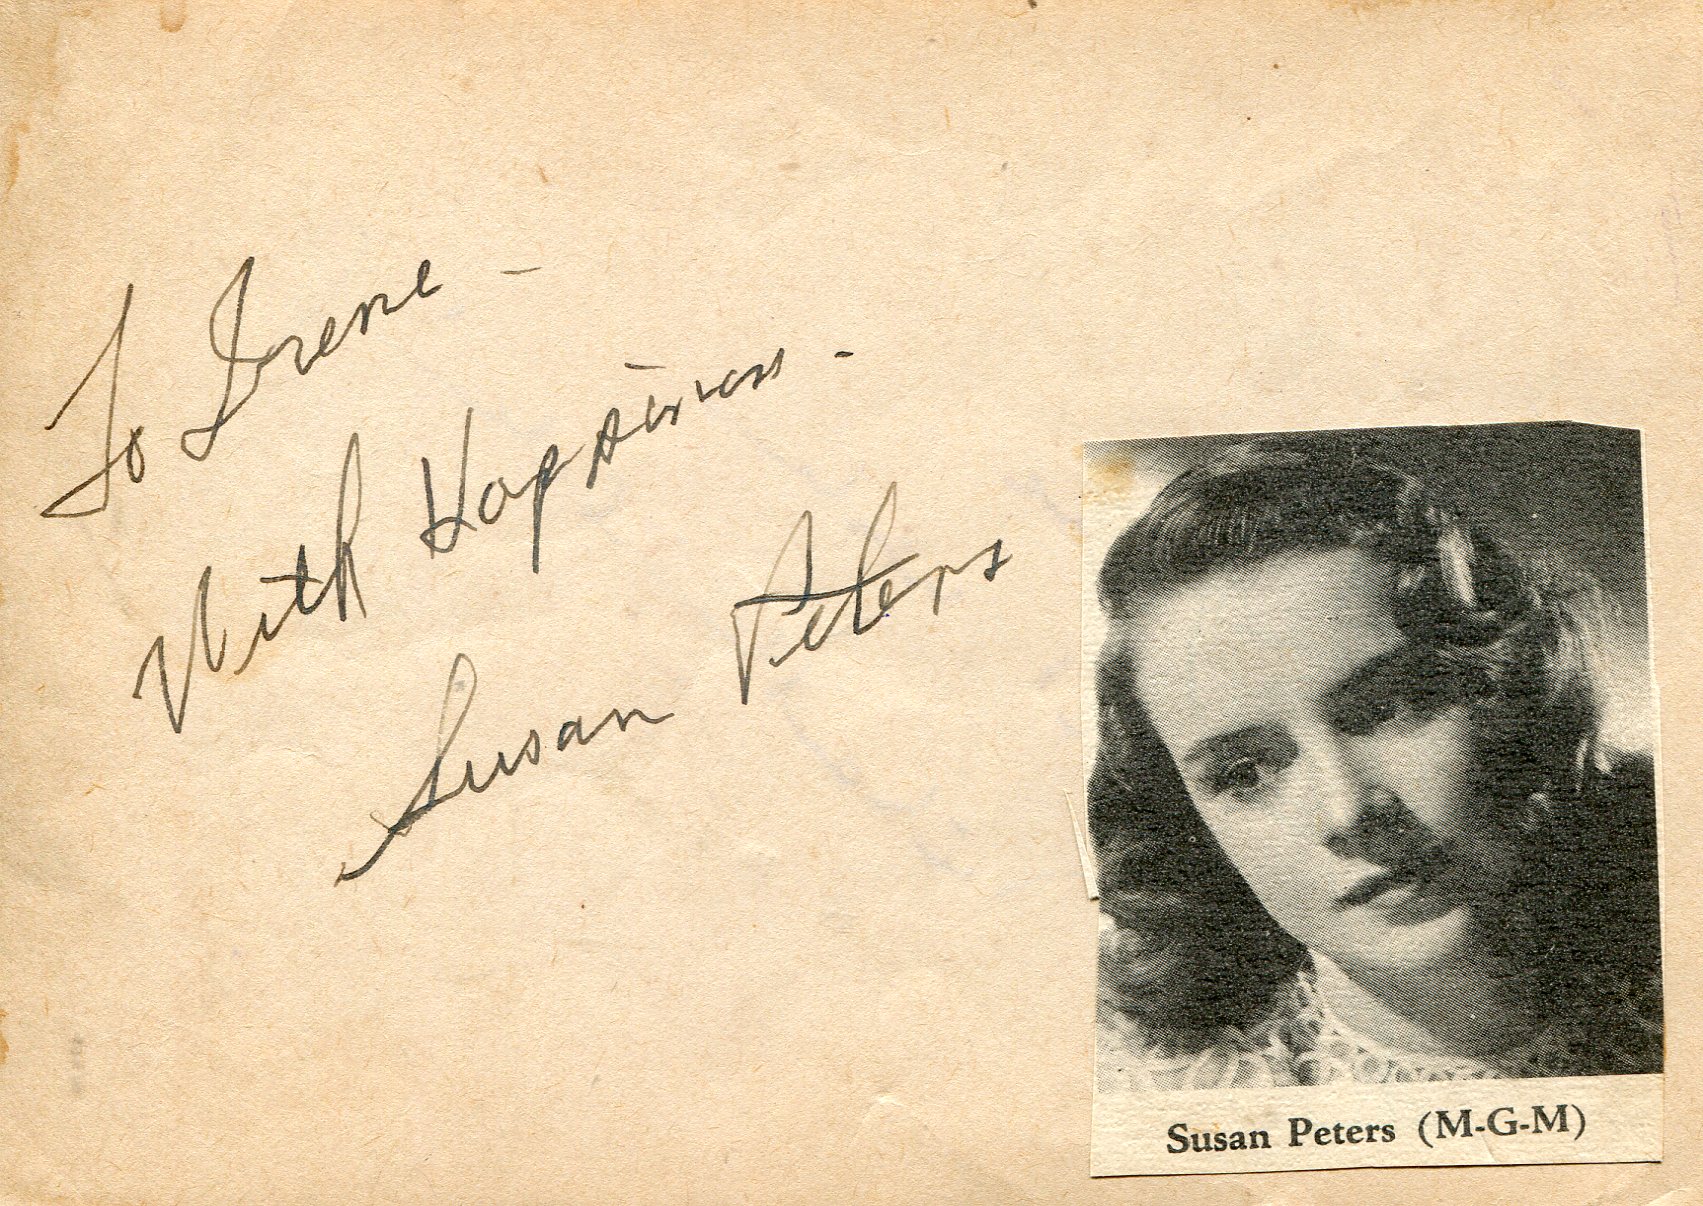 To Irene -
With Happiness -
Susan Peters
Susan Peters (M-G-M)